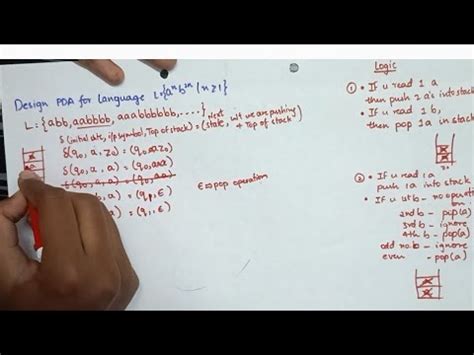 Design PDA for Language L={aⁿb²ⁿ | n≥1}
L={abb, aabbbb, aaabbbbbb,....}
δ(initial state, i/p symbol, Top of stack) = (Next state, wt we are pushing + Top of stack)
δ(q₀, a, z₀) = (q₀, aaz₀)
δ(q₀, a, a) = (q₀, aaa)
a, a) = (q₀, aa)
a) = (q₁, ε)
a) = (q₁, ε)
ε ⇒ pop operation
Logic
① • If u read 1 a
then push 2 a's into stack
• If u read 1 b,
then pop 1a in stack
② • If u read 1a
push 1a into stack
• If u 1st b - no operation
2nd b - pop(a)
3rd b - ignore
4th b - pop(a)
odd no. b - ignore
even - pop(a)